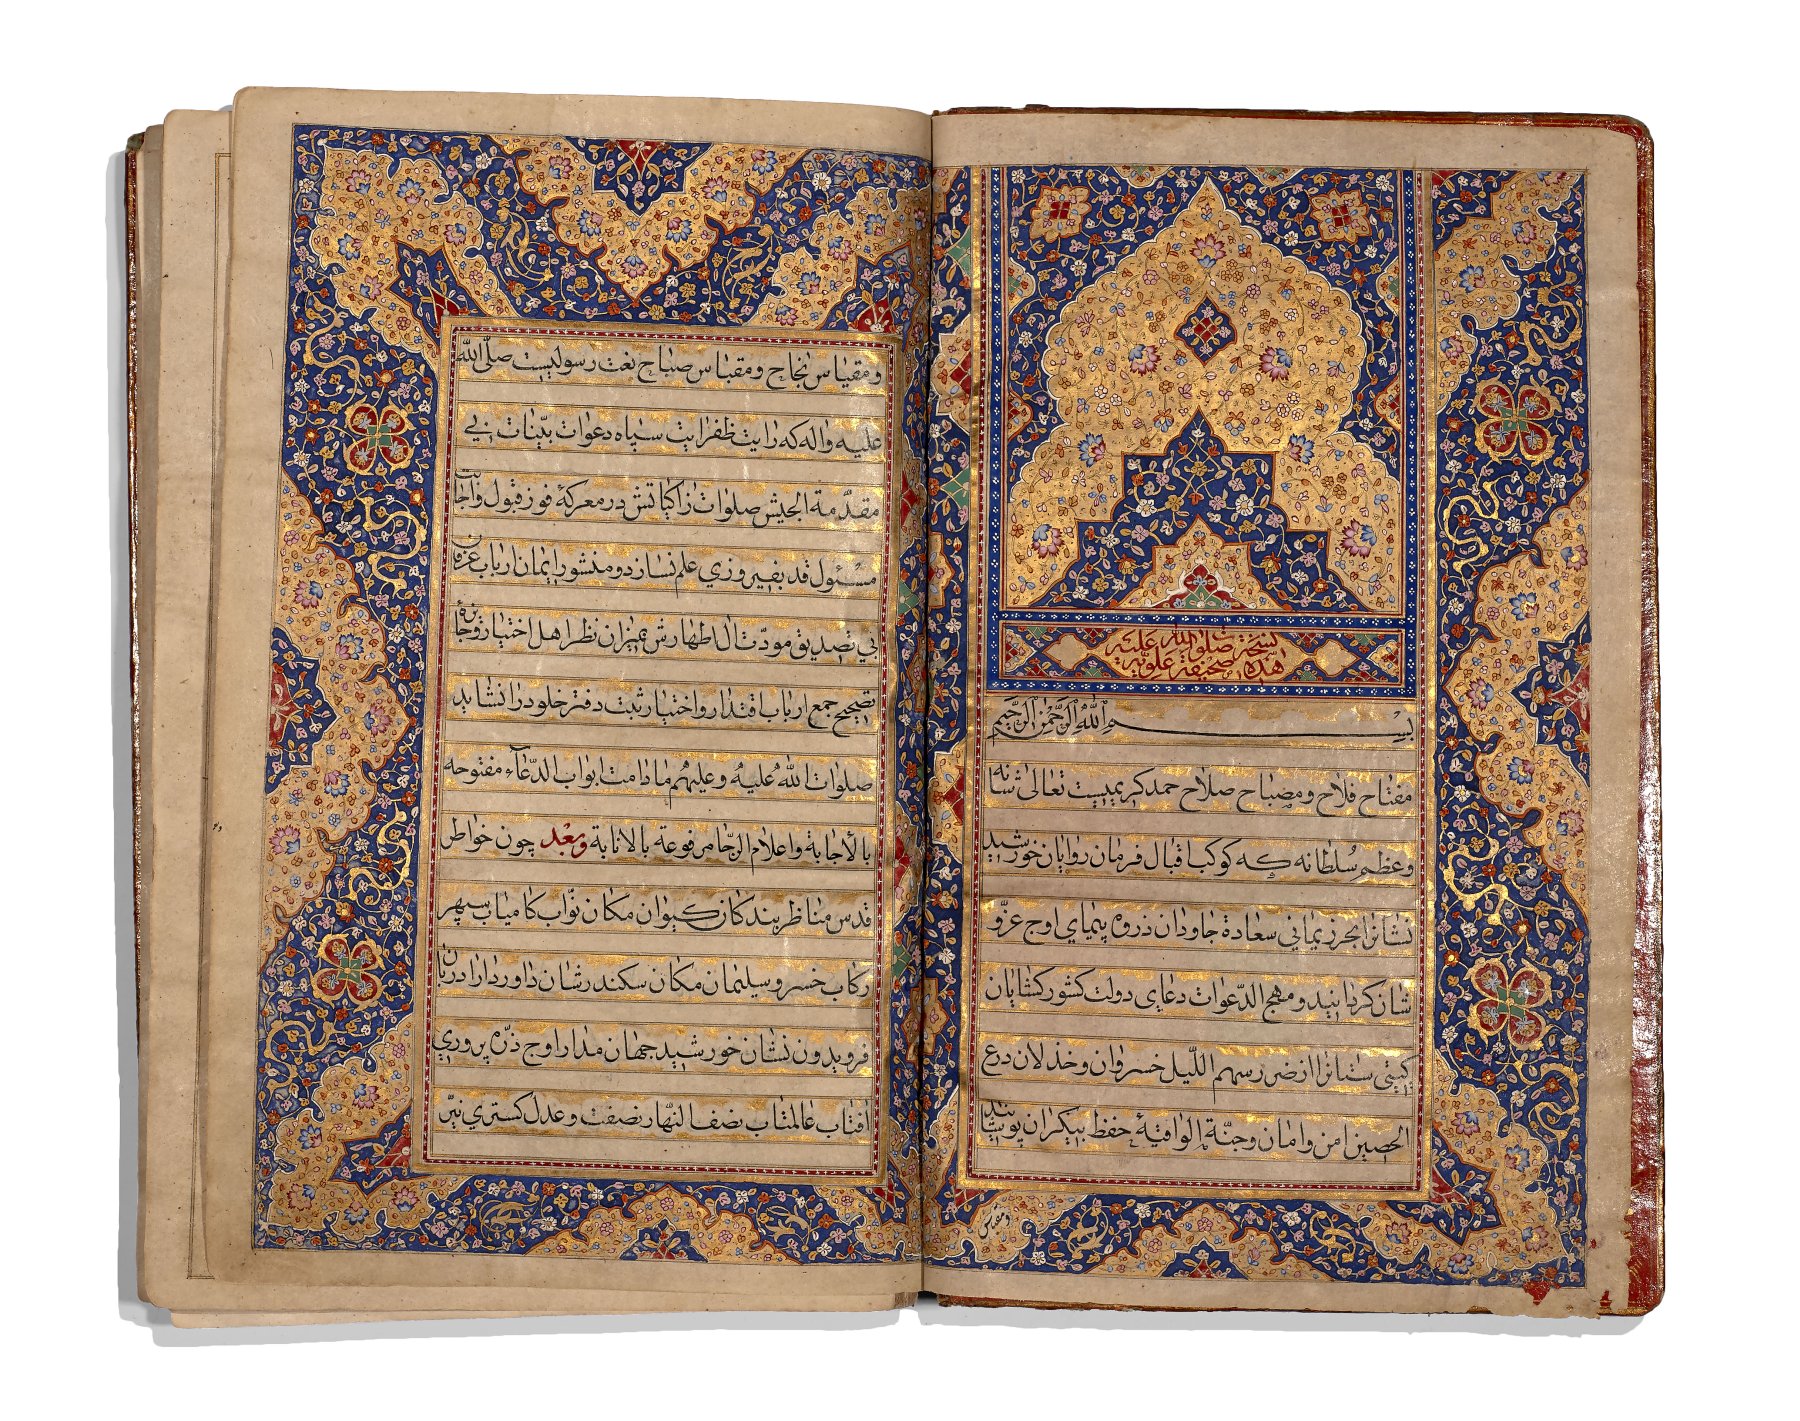 هذه نسخة صحيفة علوية صلوات الله عليه
بسم الله الرحمن الرحيم
مفتاح فلاح ومصباح صلاح حمد كريميست تعالى شانه
وعظم سلطانه كه كوكب اقبال فرمان روايان خورشيد
نشانرا بحرز يماني سعادة جاودان ذروه پيماي اوج عز و
شان كردانيد ومهج الدعوات دعاي دولت كشور كشايان
كيتي ستانرا از ضر رسهم الليل خسران وخذلان درع
الحصين امن وامان وجنة الواقية حفظ بيكران پوشانيد
ومقباس
ومقياس نجاح ومقباس صباح نعت رسوليست صلى الله
عليه واله كه رايت ظفر ايت سپاه دعوات بينات بي
مقدمة الجيش صلوات زاكياتش در معركه فوز قبول واجابت
مسئول قد بفيروزي علم نسازد ومنشور ايمان ارباب عرفان
بي تصديق مودت ال اطهارش بميزان نظر اهل اختيار وجازه
تصحيح جمع ارباب اقتدار واختيار ثبت دفتر خلود را نشايد
صلوات الله عليه وعليهم ما دامت ابواب الدعاء مفتوحه
بالاجابة واعلام الرجا مرفوعة بالانابة وبعد چون خواطر
قدس مناظر بندكان كيوان مكان نواب كامياب سپهر
ركاب خسرو سليمان مكان سكندر شان داور دارا دربان
فريدون نشان خورشيد جهان مدار اوج ذره پروري
افتاب عالمتاب نصف النهار نصفت وعدل كستري نير